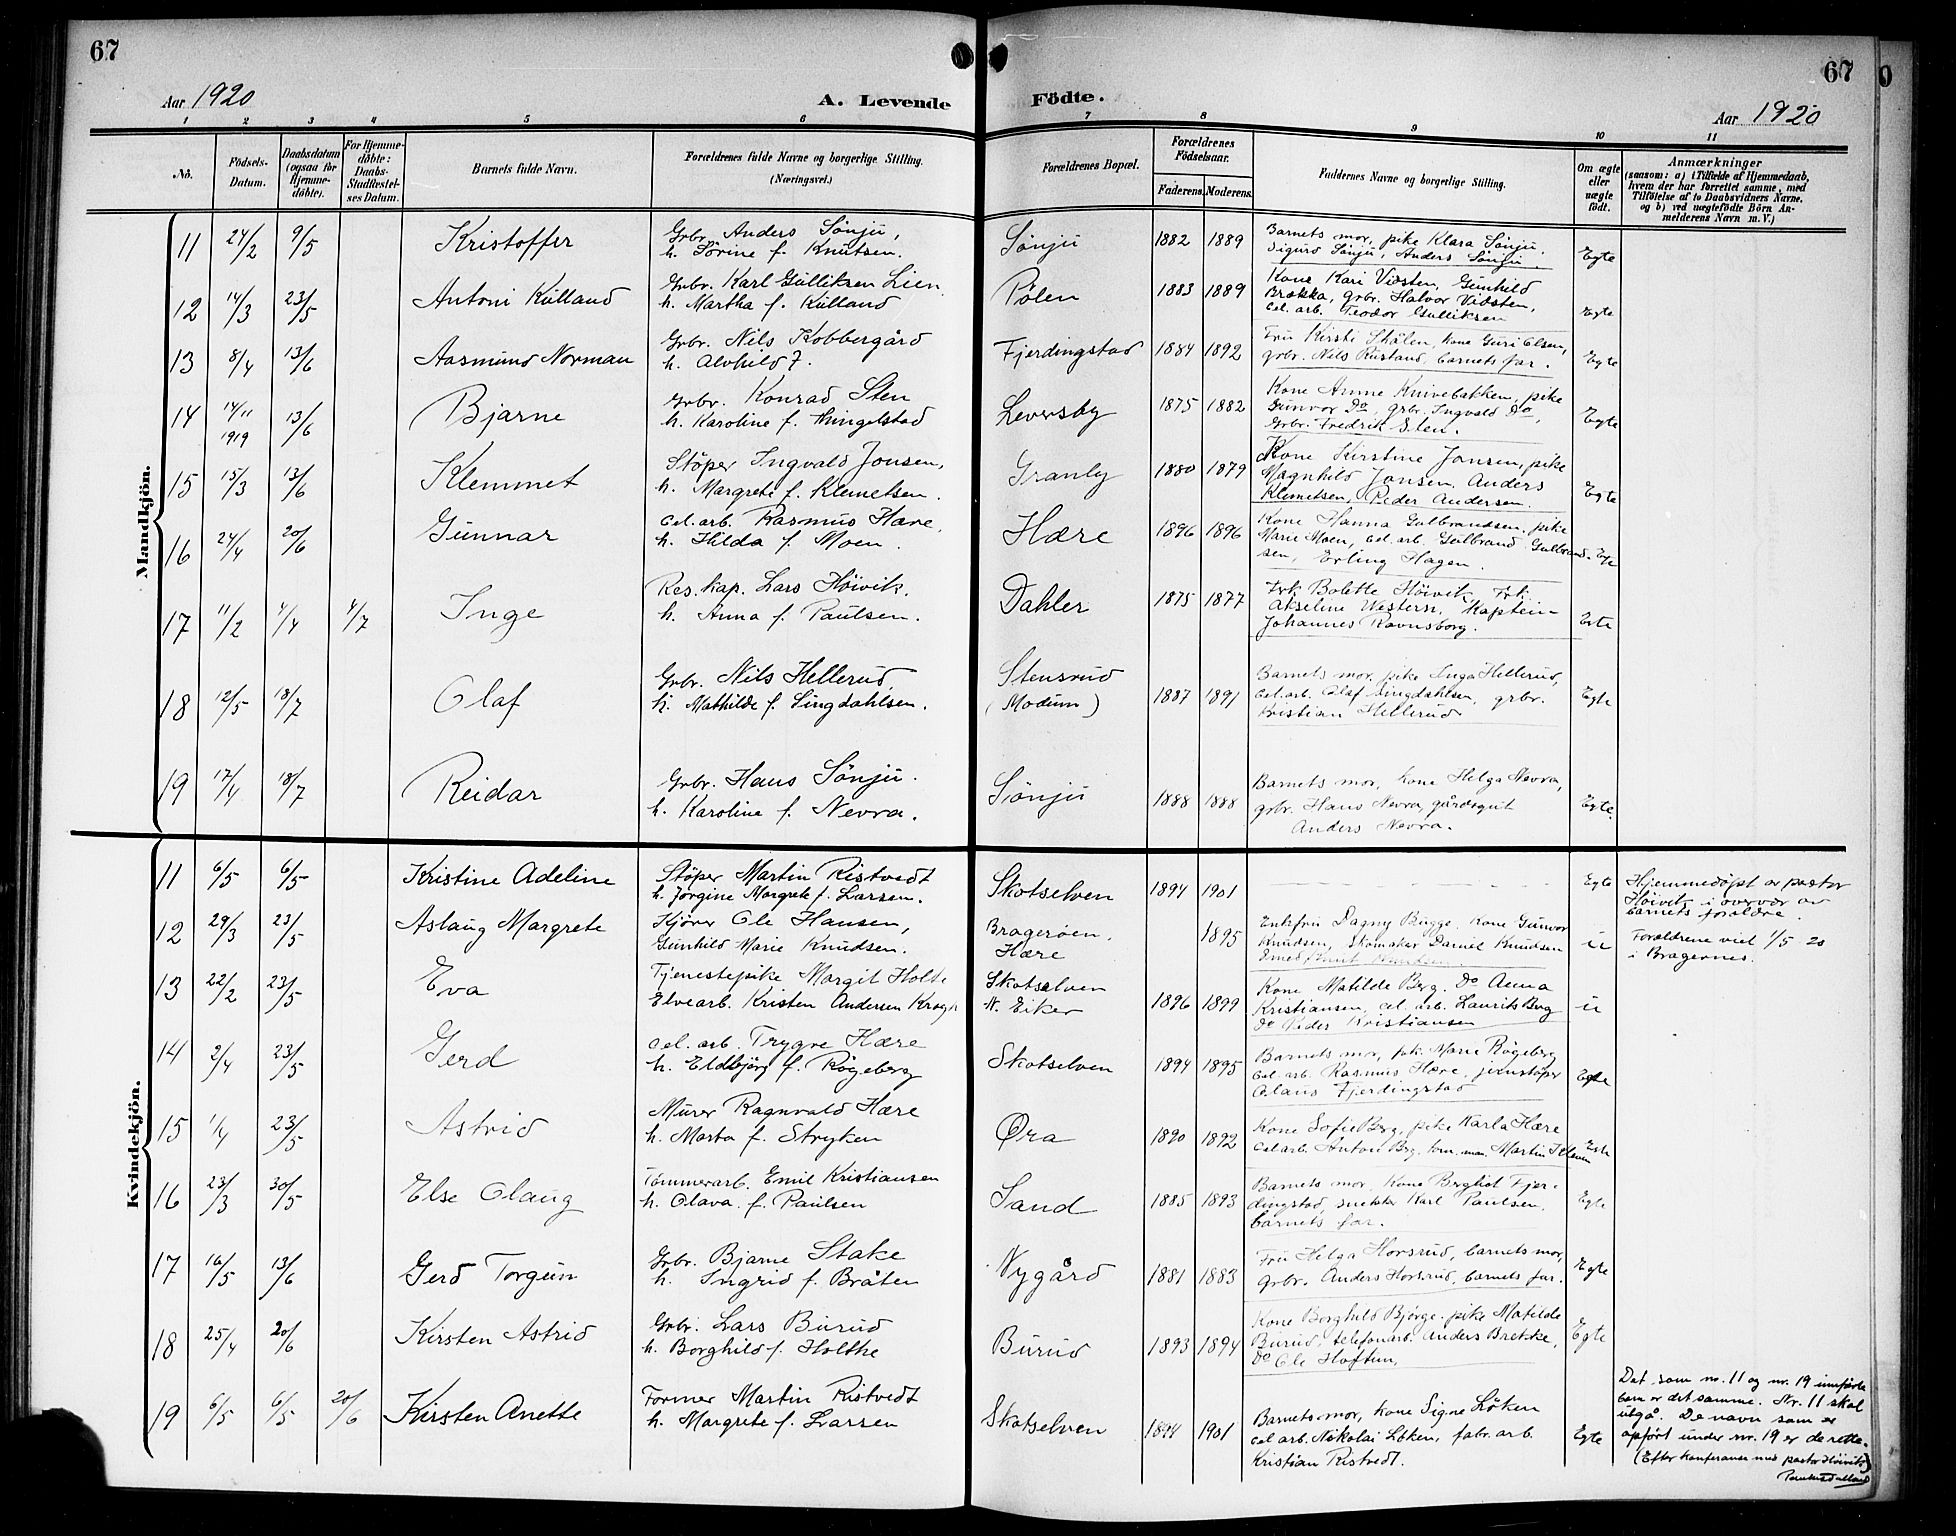 67
67
Aar 1920
A. Levende Födte.
Aar 1920
1 2 3 4 5 6 7 8 9 10 11
No.
Födsels-
Datum.
Daabsdatum
(ogsaa for
Hjemme-
döbte).
For Hjemme-
döbte:
Daabs-
Stadfestel-
ses Datum.
Barnets fulde Navn.
Forældrenes fulde Navne og borgerlige Stilling.
(Næringsvei.)
Forældrenes Bopæl.
Forældrenes
Födselsaar.
Faderens. Moderens.
Faddernes Navne og borgerlige Stilling.
Om ægte
eller
uægte
födt.
Anmærkninger
(saasom: a) i Tilfælde af Hjemmedaab,
hvem der har forrettet samme, med
Tilföielse af to Daabsvidners Navne.
og b) ved uægtefödte Börn An-
melderens Navn m. V.)
Mandkjön.
11 24/2 9/5 Kristoffer
Grbr. Anders Sönju,
h. Sörine f. Knutsen.
Sönju 1882 1889
Barnets mor, pike Klara Sönju.
Sigurd Sönju, Anders Sönju.
Egte
12 14/3 23/5 Antoni Kulland
Grbr. Karl Gulliksen Lien
h. Martha f. Kulland
Pölen 1883 1889
Kone Kari Vidsten, Gunhild
Brekka, grbr. Halvor Vidsten,
Cel. arb. Teodor Gulliksen
Egte
13 8/4 13/6 Aasmund Norman
Grbr. Nils Kobbergård
h. Alvhild F.
Fjerdingstad 1884 1892
Fru Kirsti Skålen, kone Guri Olsen,
grbr. Nils Rustand, barnets far.
Egte
14 14/11 1919 13/6 Bjarne
Grbr. Konrad Sten
h. Karoline f. Hingelstad
Leversby 1875 1882
Kone Anne Knivebakken, pike
Gunvor Do, grbr. Ingvald Do,
Grbr. Fredrik Sten.
Egte
15 15/3 13/6 Klemmet
Stöper Ingvald Jonsen,
h. Margrete f. Klemetsen.
Granly 1880 1879
Kone Kirstine Jonsen, pike
Magnhild Jonsen, Anders
Klemetsen, Peder Andersen.
Egte
16 24/4 20/6 Gunnar
Cel. arb. Rasmus Hære,
h. Hilda f. Moen.
Hære 1896 1896
Kone Hanna Gulbrandsen, pike
Marie Moen, cel. arb. Gulbrand Gulbrand-
sen, Erling Hagen.
Egte
17 11/2 4/4 4/7 Inge
Res. kap. Lars Höivik,
h. Anna f. Paulsen.
Dahler 1875 1877
Frk. Bolette Höivik, Frk.
Akseline Western, Kaptein
Johannes Ravnsborg.
Egte
18 12/5 18/7 Olaf
Grbr. Nils Hellerud,
h. Mathilde f. Lingdahlsen.
Stensrud
(Modum)
1887 1891
Barnets mor, pike Inga Hellerud,
Cel. arb. Olaf Lingdahlsen, grbr.
Kristian Hellerud
Egte
19 17/4 18/7 Reidar
Grbr. Hans Sönju.
h. Karoline f. Nevra.
Sönju 1888 1888
Barnets mor, kone Helga Nevra,
grbr. Hans Nevra, gårdsgut
Anders Nevra.
Egte.
Kvindekjön.
11 6/5 6/5 Kristine Adeline
Stöper Martin Ristvedt
h. Jörgine Margrete f. Larsen.
Skotselven 1894 1901
Egte
Hjemmedöpt av pastor
Höivik i overvær av
barnets forældre.
12 29/3 23/5 Aslaug Margrete
Kjörer Ole Hansen,
Gunhild Marie Knudsen.
Bragerøen,
Hære
1895
Enkefru Dagny Bugge, Kone Gunvor
Knudsen, Skomaker Daniel Knudsen
u
Forældrene viet 1/5 20
i Bragernes.
13 22/2 23/5 Eva
Tjenestepike Margit Holte
Elvearb. Kristen Andersen Krogh
Skotselven
N. Eiker
1896 1899
Kone Matilde Berg, Do Anna
Kristiansen, cel. arb. Laurits Berg
Do Peder Kristiansen
u
14 2/4 23/5 Gerd
Cel. arb. Trygve Hære
h. Eldbjörg f. Rögeberg
Skotselven 1894 1895
Barnets mor, pik. Marie Rögeberg
Cel. arb. Rasmus Hære, jernstöper
Olaus Fjerdingstad
Egte
15 1/4 23/5 Astrid
Murer Ragnvald Hære
h. Marta f. Stryken
Øra 1890 1892
Kone Sofie Berg, pike Karla Hære
Cel arb. Anton Berg, Martin
Egte
16 23/3 30/5 Else Olaug
Tömmerarb. Emil Kristiansen
h. Olava f. Paulsen
Sand 1885 1893
Barnets mor, Kone Berghot Fjer-
dingstad, snekker Karl Paulsen,
barnets far.
Egte
17 16/5 13/6 Gerd Torgun
Grbr. Bjarne Stake
h. Ingrid f. Bråten
Nygård 1881 1883
Fru Helga Horsrud, barnets mor,
grbr. Anders Horsrud, barnets far.
Egte
18 25/4 20/6 Kirsten Astrid
Grbr. Lars Burud
h. Borghild f. Holthe
Burud 1893 1894
Kone Borghild Bjørge, pike Matilde
Burud, telefonarb. Anders Brekke,
Do Ole Hoftun,
Egte
19 6/5 6/5 20/6 Kirsten Anette
Former Martin Ristvedt
h. Margrete f. Larsen
Skotselven 1894 1901
Barnets mor, kone Signe Löken
cel arb. Nikolai Löken, fabr. arb.
Kristian Ristvedt.
Egte
Det som nr. 11 og nr. 19 innförte
barn er det samme. Nr. 11 skal
utgå. De navn som er
opfört under nr. 19 er de rette.
(Efter konferanse med pastor Höivik)